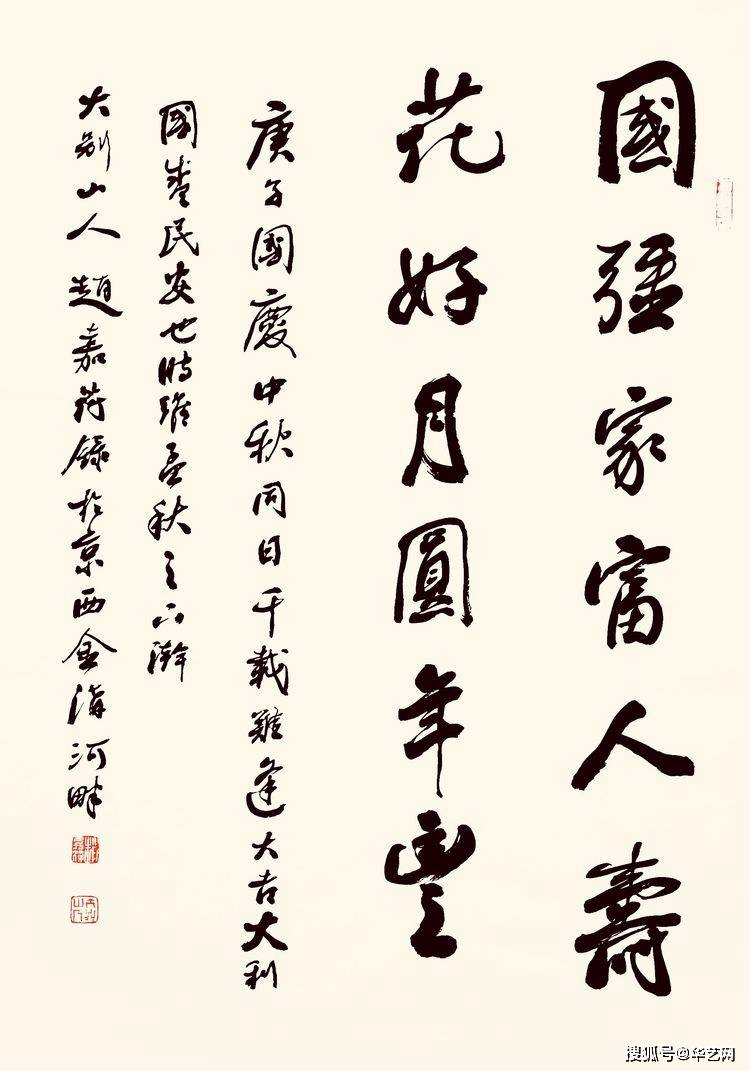 國強家富人壽
花好月圓年豐
庚子國慶中秋同日千載難逢大吉大利
國盛民安也時維孟秋之下澣
大別山人趙嘉符錄於京西金溝河畔
搜狐号@华艺网